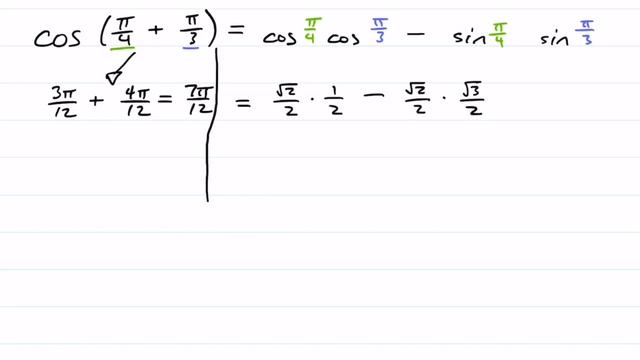 cos (π/4 + π/3) = cos π/4 cos π/3 − sin π/4 sin π/3
3π/12 + 4π/12 = 7π/12 = √2/2 · 1/2 − √2/2 · √3/2